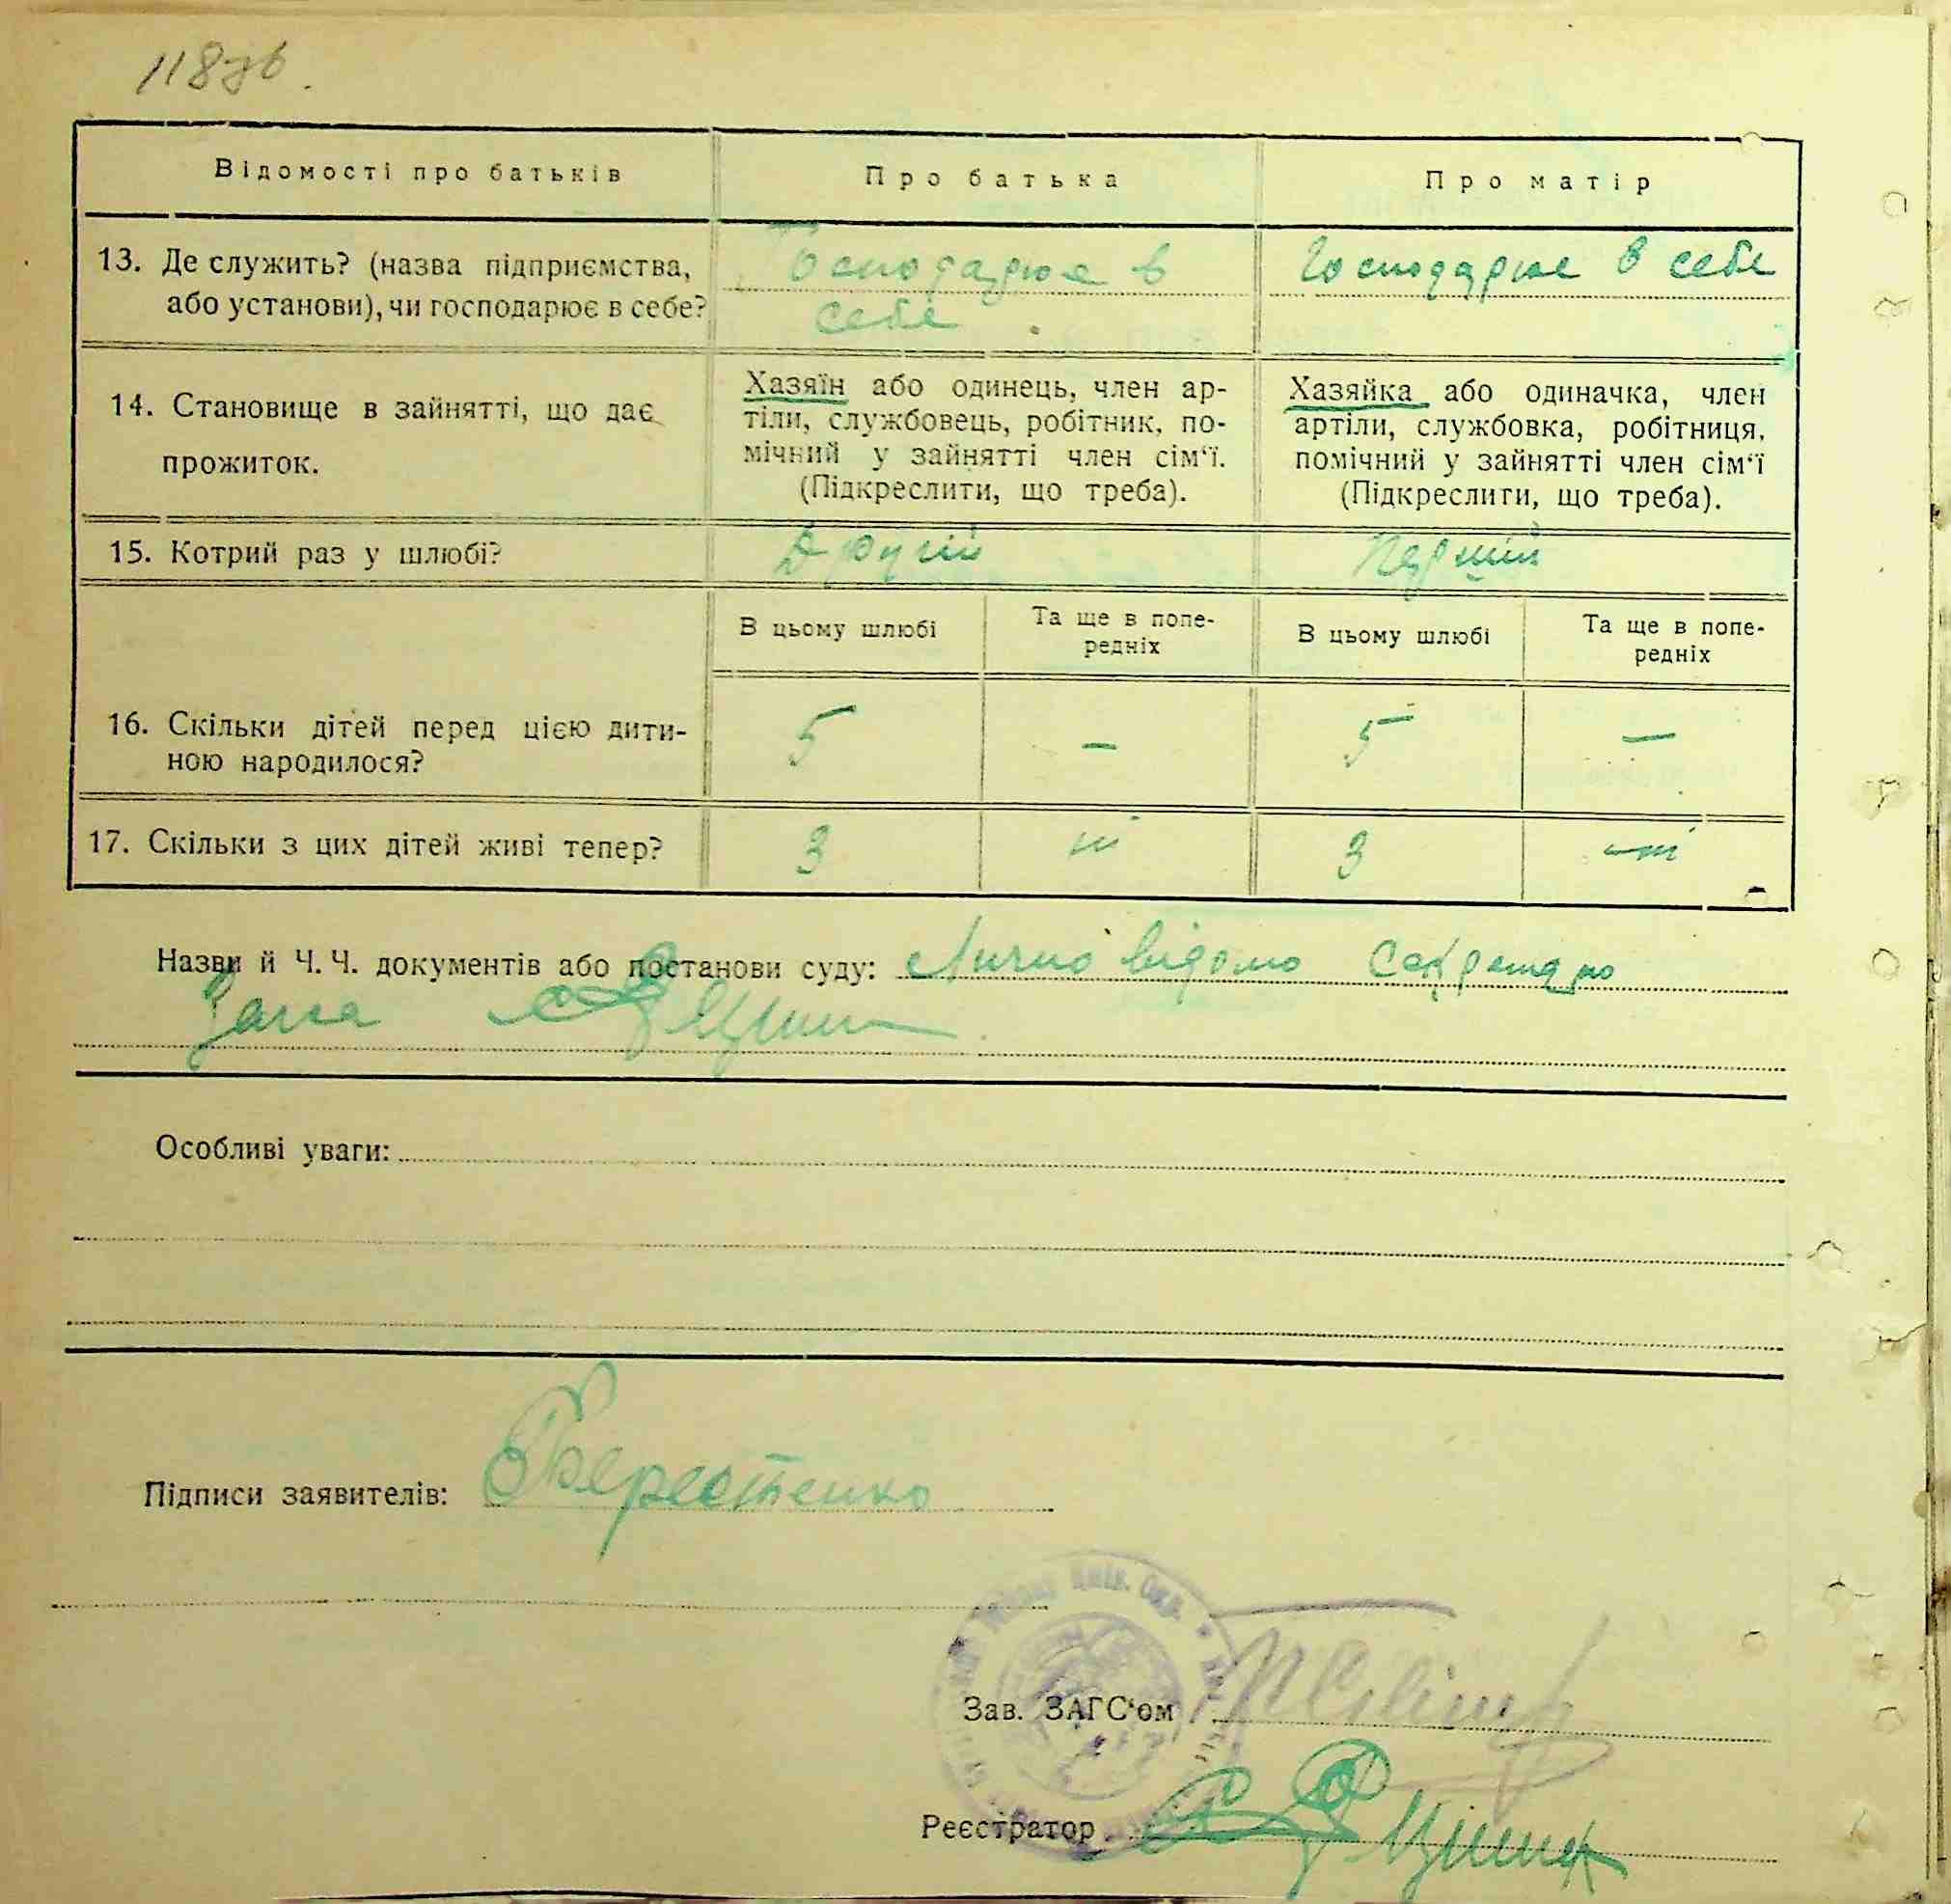 118зв.
Відомості про батьків
Про батька
Про матір
13. Де служить? (назва підприємства,
або установи), чи господарює в себе?
Господарює в
себе
Господарює в себе
14. Становище в зайнятті, що дає
прожиток.
Хазяїн або одинець, член ар-
тіли, службовець, робітник, по-
мічний у зайнятті член сім'ї.
(Підкреслити, що треба).
Хазяйка або одиначка, член
артіли, службовка, робітниця,
помічний у зайнятті член сім'ї
(Підкреслити, що треба).
15. Котрий раз у шлюбі?
Другий
Перший
В цьому шлюбі
Та ще в попе-
редніх
В цьому шлюбі
Та ще в попе-
редніх
16. Скільки дітей перед цією дити-
ною народилося?
5
—
5
—
17. Скільки з цих дітей живі тепер?
3
3
Назви й Ч. Ч. документів або постанови суду: Лично відомо Секретарю
Загса
Особливі уваги:
Підписи заявителів: Берестенко
Зав. ЗАГС'ом
Реєстратор